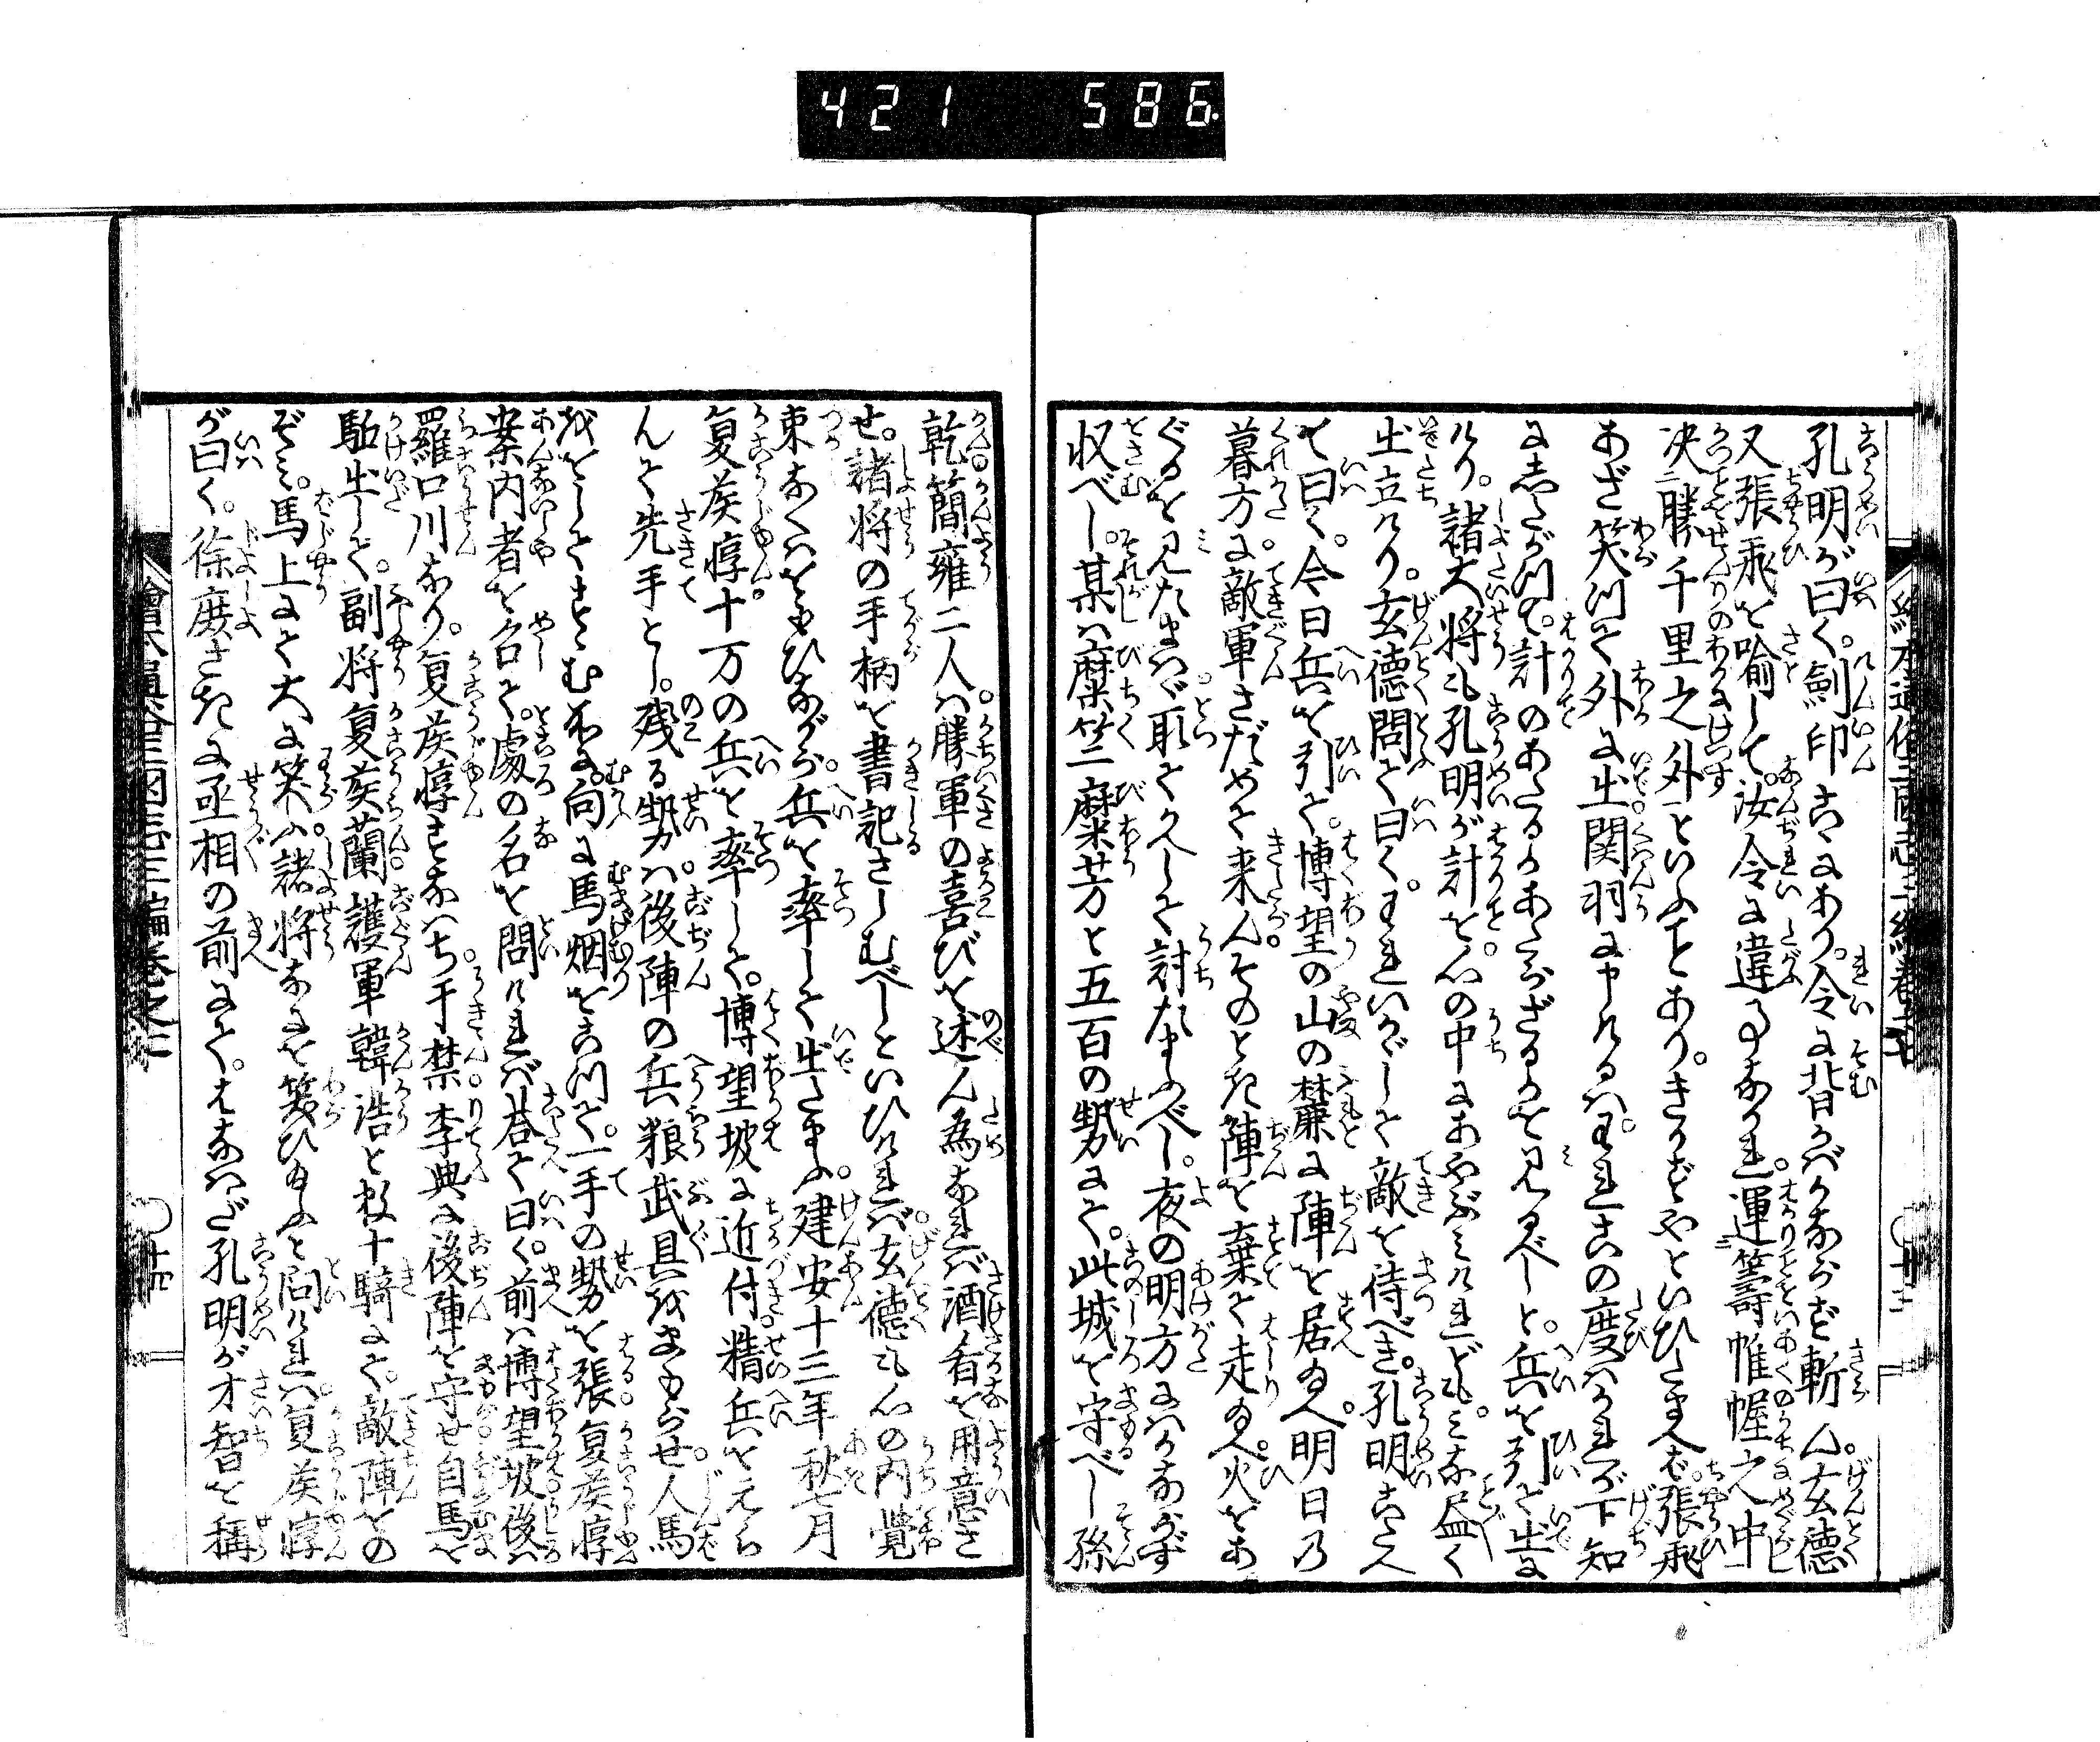 421 586
孔明が曰く。劍印こゝにあり。令に背かばかならず斬ん。玄德
又張飛を喩して。汝令に違ふ事なかれ。運籌帷幄之中
決勝千里之外といふことあり。きかずやといひたまへば。張飛
あざ笑つて外に出関羽に申けるは。われこの度はかれが下知
にしたがつて。計のあたるかあたらざるかを見るべしと。兵を引て出に
けり。諸大将も孔明が計を。心の中にあやぶみけれども。みな尽く
出立けり。玄德問て曰く。われいかゞして敵を待べき。孔明こたへ
て曰く。今日兵を引て。博望の山の麓に陣を居玉へ。明日の
暮方に敵軍さだめて来らん。そのとき陣を棄て走玉へ。火をあ
ぐるを見たまはゞ。取てかへして討たまふべし。夜の明方にはかならず
収べし。某は麋竺麋芳と五百の勢にて。此城を守べし孫
乾簡雍二人は。勝軍の喜びを述ん為なれば酒肴を用意さ
せ。諸将の手柄を書記さしむべしといひければ。玄德も心の内覺
束なくはをもひながら。兵を率して出たまふ。建安十三年秋七月
夏侯惇。十万の兵を率して。博望坡に近付。精兵をえら
んで先手とし。残る勢は。後陣の兵粮武具をまもらせ。人馬
をどしてすゝむ処に。向に馬烟をたつて。一手の勢を張。夏侯惇
案内者を召て。處の名を問ければ。答て曰く。前は博望坡後は
羅口川なり。夏侯惇すなはち。于禁李典に後陣を守せ自馬を
駈出して。副将夏侯蘭。護軍韓浩と数十騎にて。敵陣をの
ぞみ。馬上にて大に笑ふ。諸将なにを笑ひ玉ふと問ければ。夏侯惇
が曰く。徐庶さきに丞相の前にて。はなはだ孔明が才智を稱
繪本通俗三國志三編卷之七
十三
十四